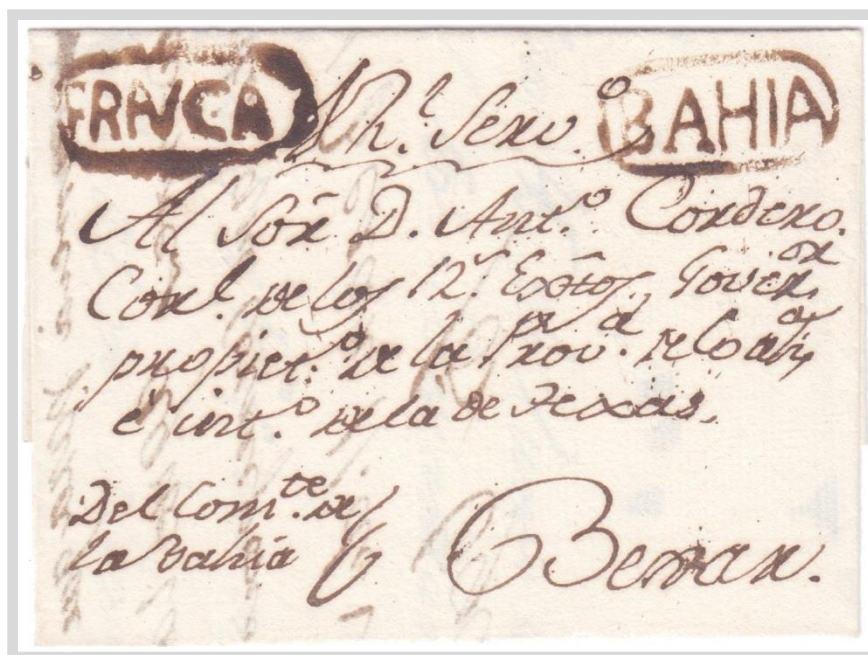 FRANCA
Rl. Servo.
BAHIA
Al Sor. D. Anto. Cordero.
Corl. de los Rs. Extos, Goveror.
propieto. de la Prova. de Coaha,
é into. de la de Texas.
Del Comte. de
la Bahia
Bexar.